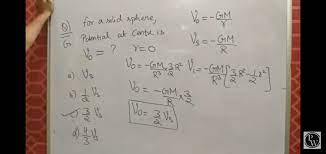 Q) for a solid sphere,
Potential at Centre is
V₀ = ? r=0
a) Vs
b) 1/2 Vs
c) 3/2 Vs
d) 4/3 Vs
V₀ = -GM/r
Vs = -GM/R
V₀ = -GM/R³ × 3/2 R²
V₀ = -GM/R × 3/2
V₀ = 3/2 Vs
= -GM/R³ [3/2 R² - 1/2 r²]